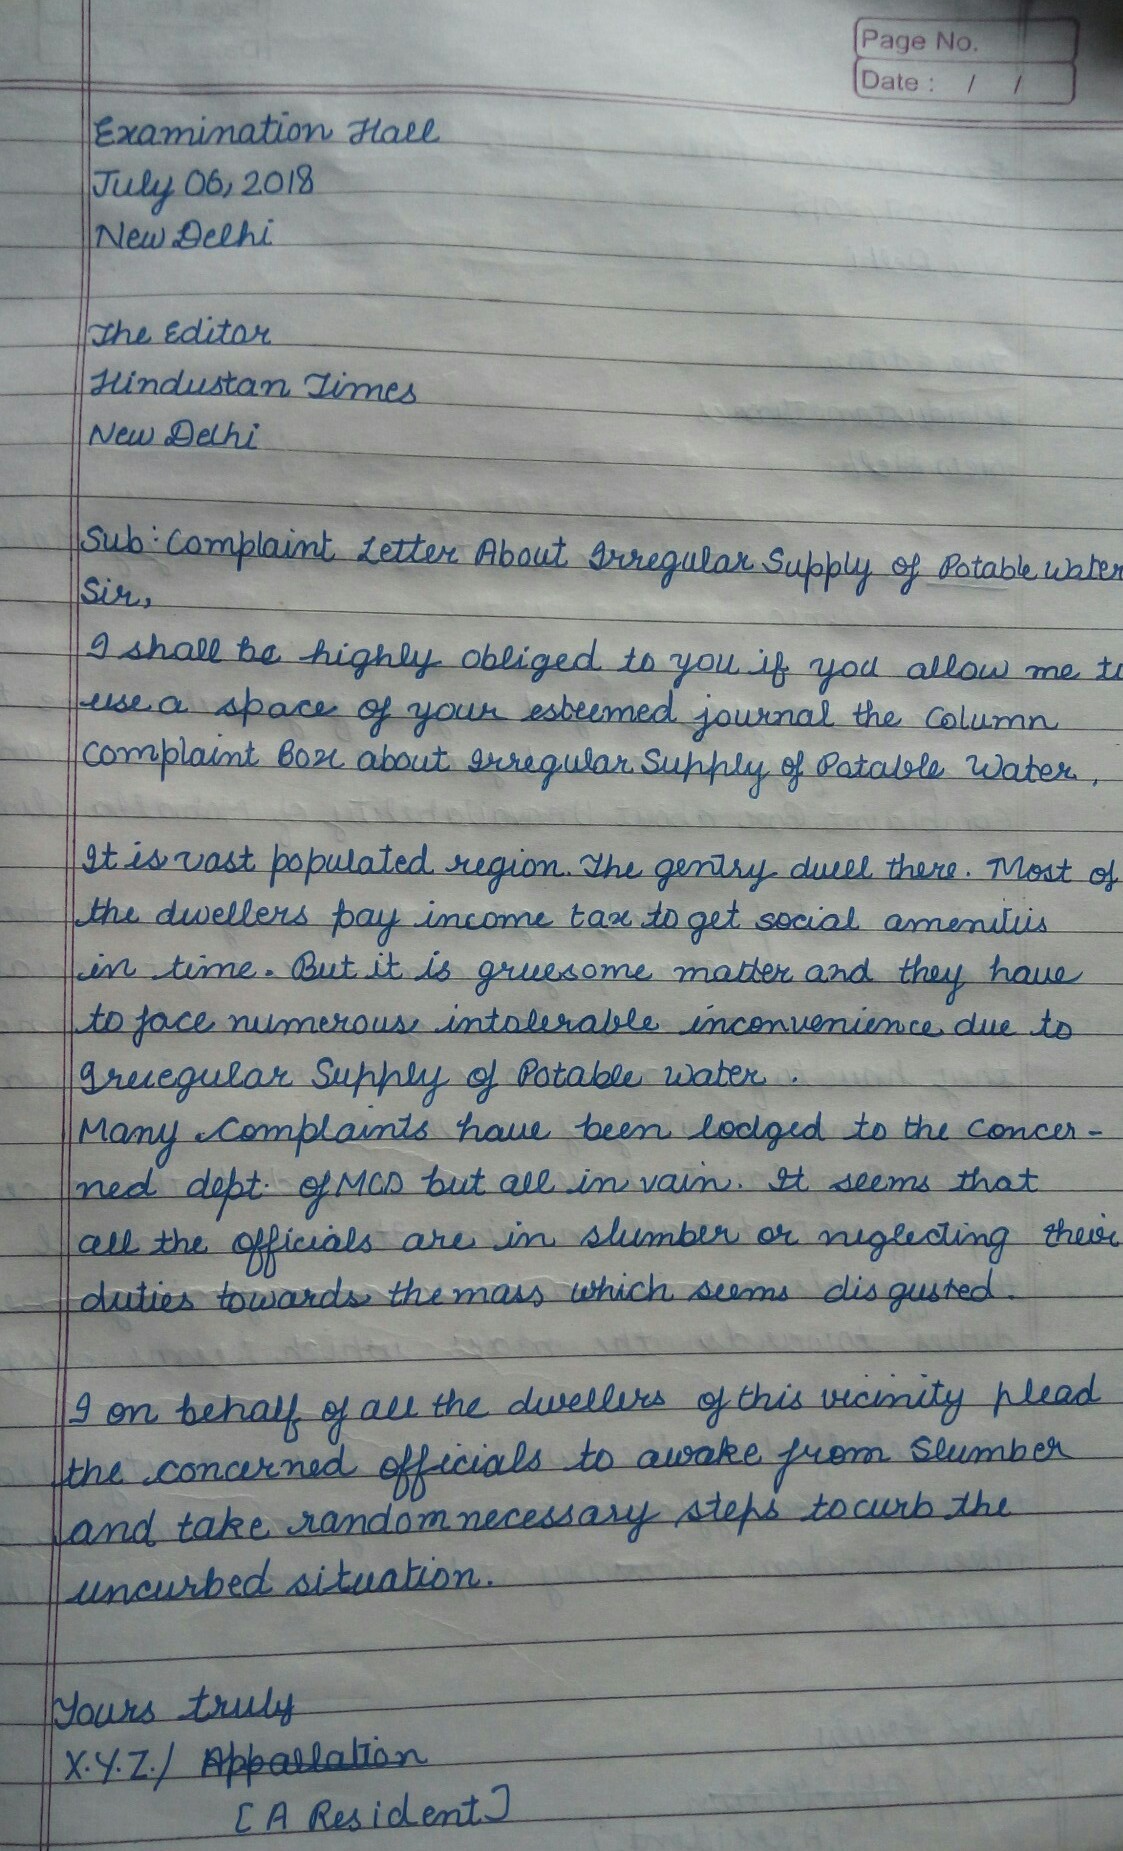 Page No.
Date : / /
Examination Hall
July 06, 2018
New Delhi
The Editor
Hindustan Times
New Delhi
Sub: Complaint Letter About Irregular Supply of Potable Water
Sir,
I shall be highly obliged to you if you allow me to
use a space of your esteemed journal the column
complaint Box about Irregular Supply of Potable Water.
It is vast populated region. The gentry dwell there. Most of
the dwellers pay income tax to get social amenitiis
in time. But it is gruesome matter and they have
to face numerous intolerable inconvenience due to
Irregular Supply of Potable Water.
Many complaints have been lodged to the concer-
ned dept. of MCD but all in vain. It seems that
all the officials are in slumber or neglecting their
duties towards the mass which seems disgusted.
I on behalf of all the dwellers of this vicinity plead
the concerned officials to awake from slumber
and take random necessary steps to curb the
uncurbed situation.
Yours truly
X.Y.Z./ Appallation
[A Resident]